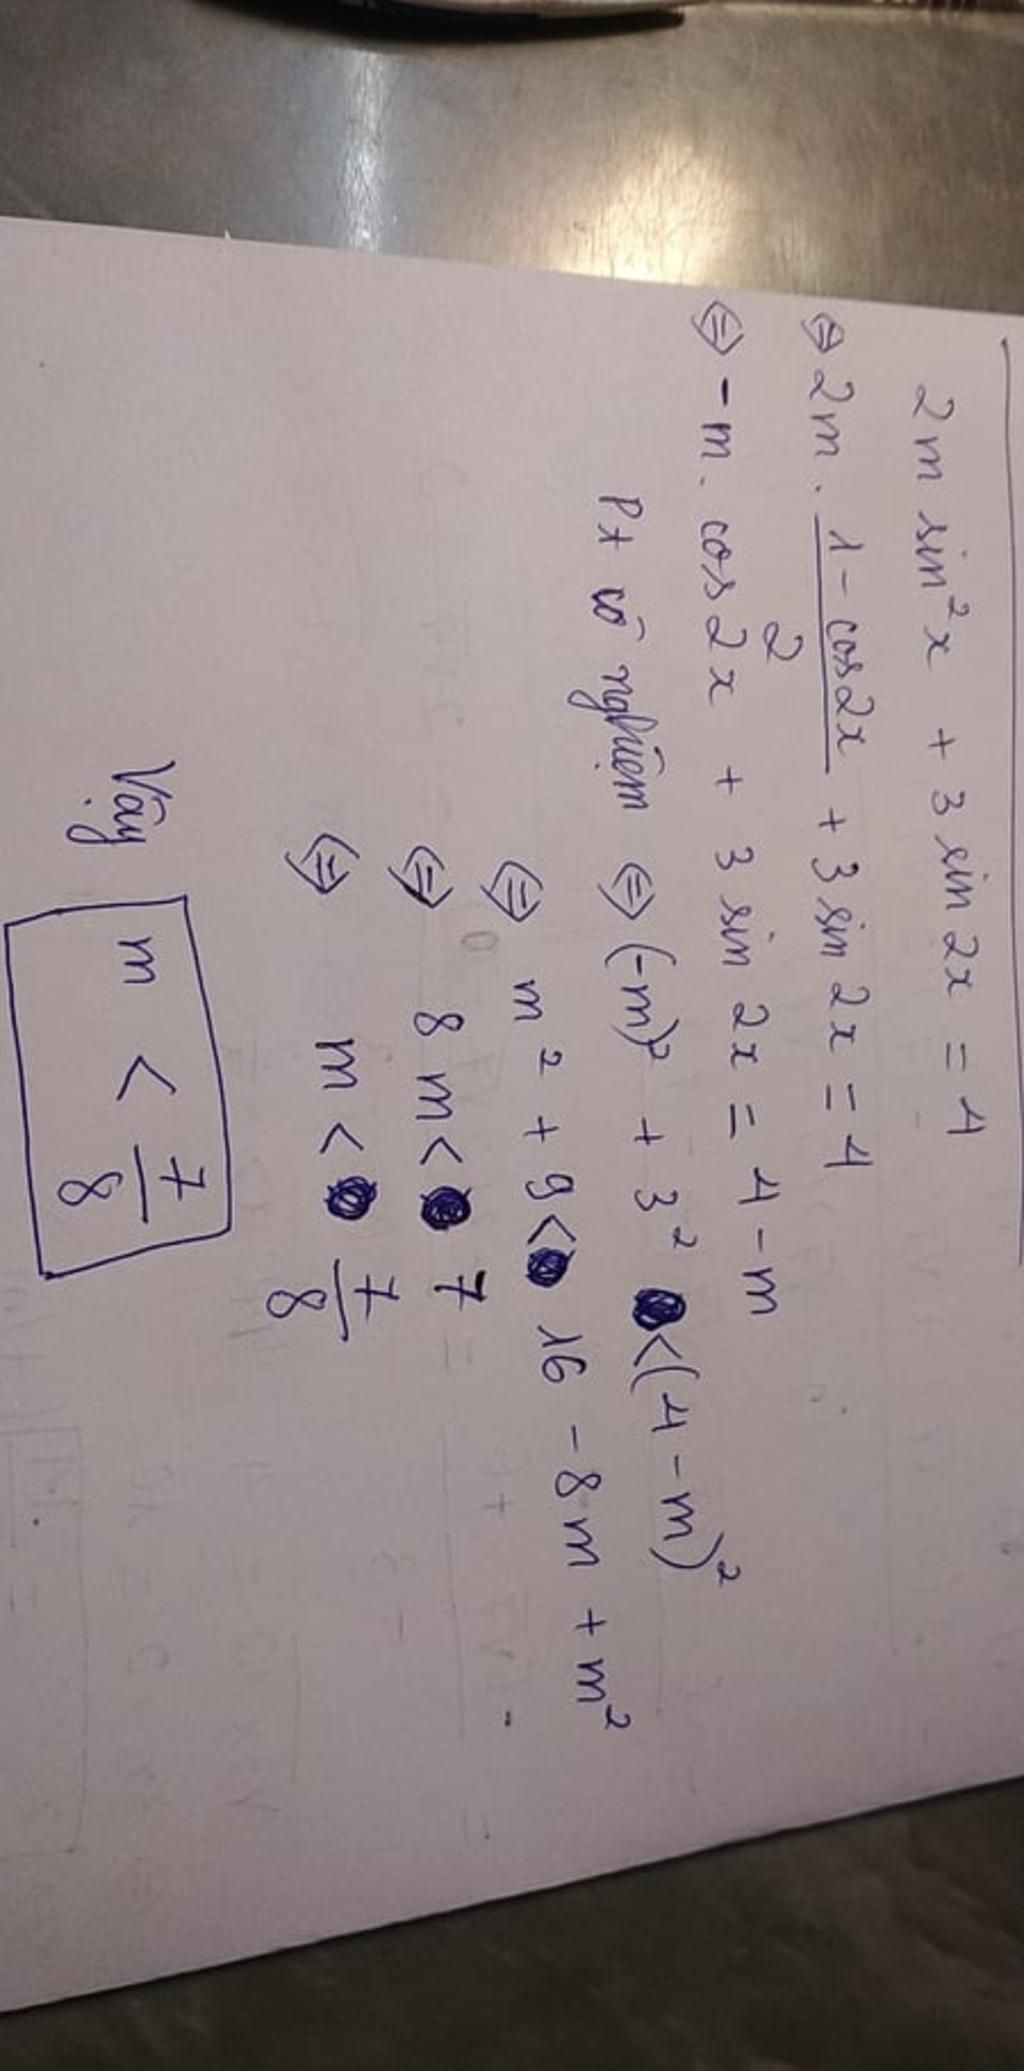 2m sin²x + 3 sin 2x = 4
⇔ 2m . (1 - cos2x)/2 + 3 sin 2x = 4
⇔ -m. cos 2x + 3 sin 2x = 4 - m
Pt vô nghiệm ⇔ (-m)² + 3² < (4 - m)²
⇔ m² + 9 < 16 - 8m + m²
⇔ 8m < 7
⇔ m < 7/8
Vậy m < 7/8